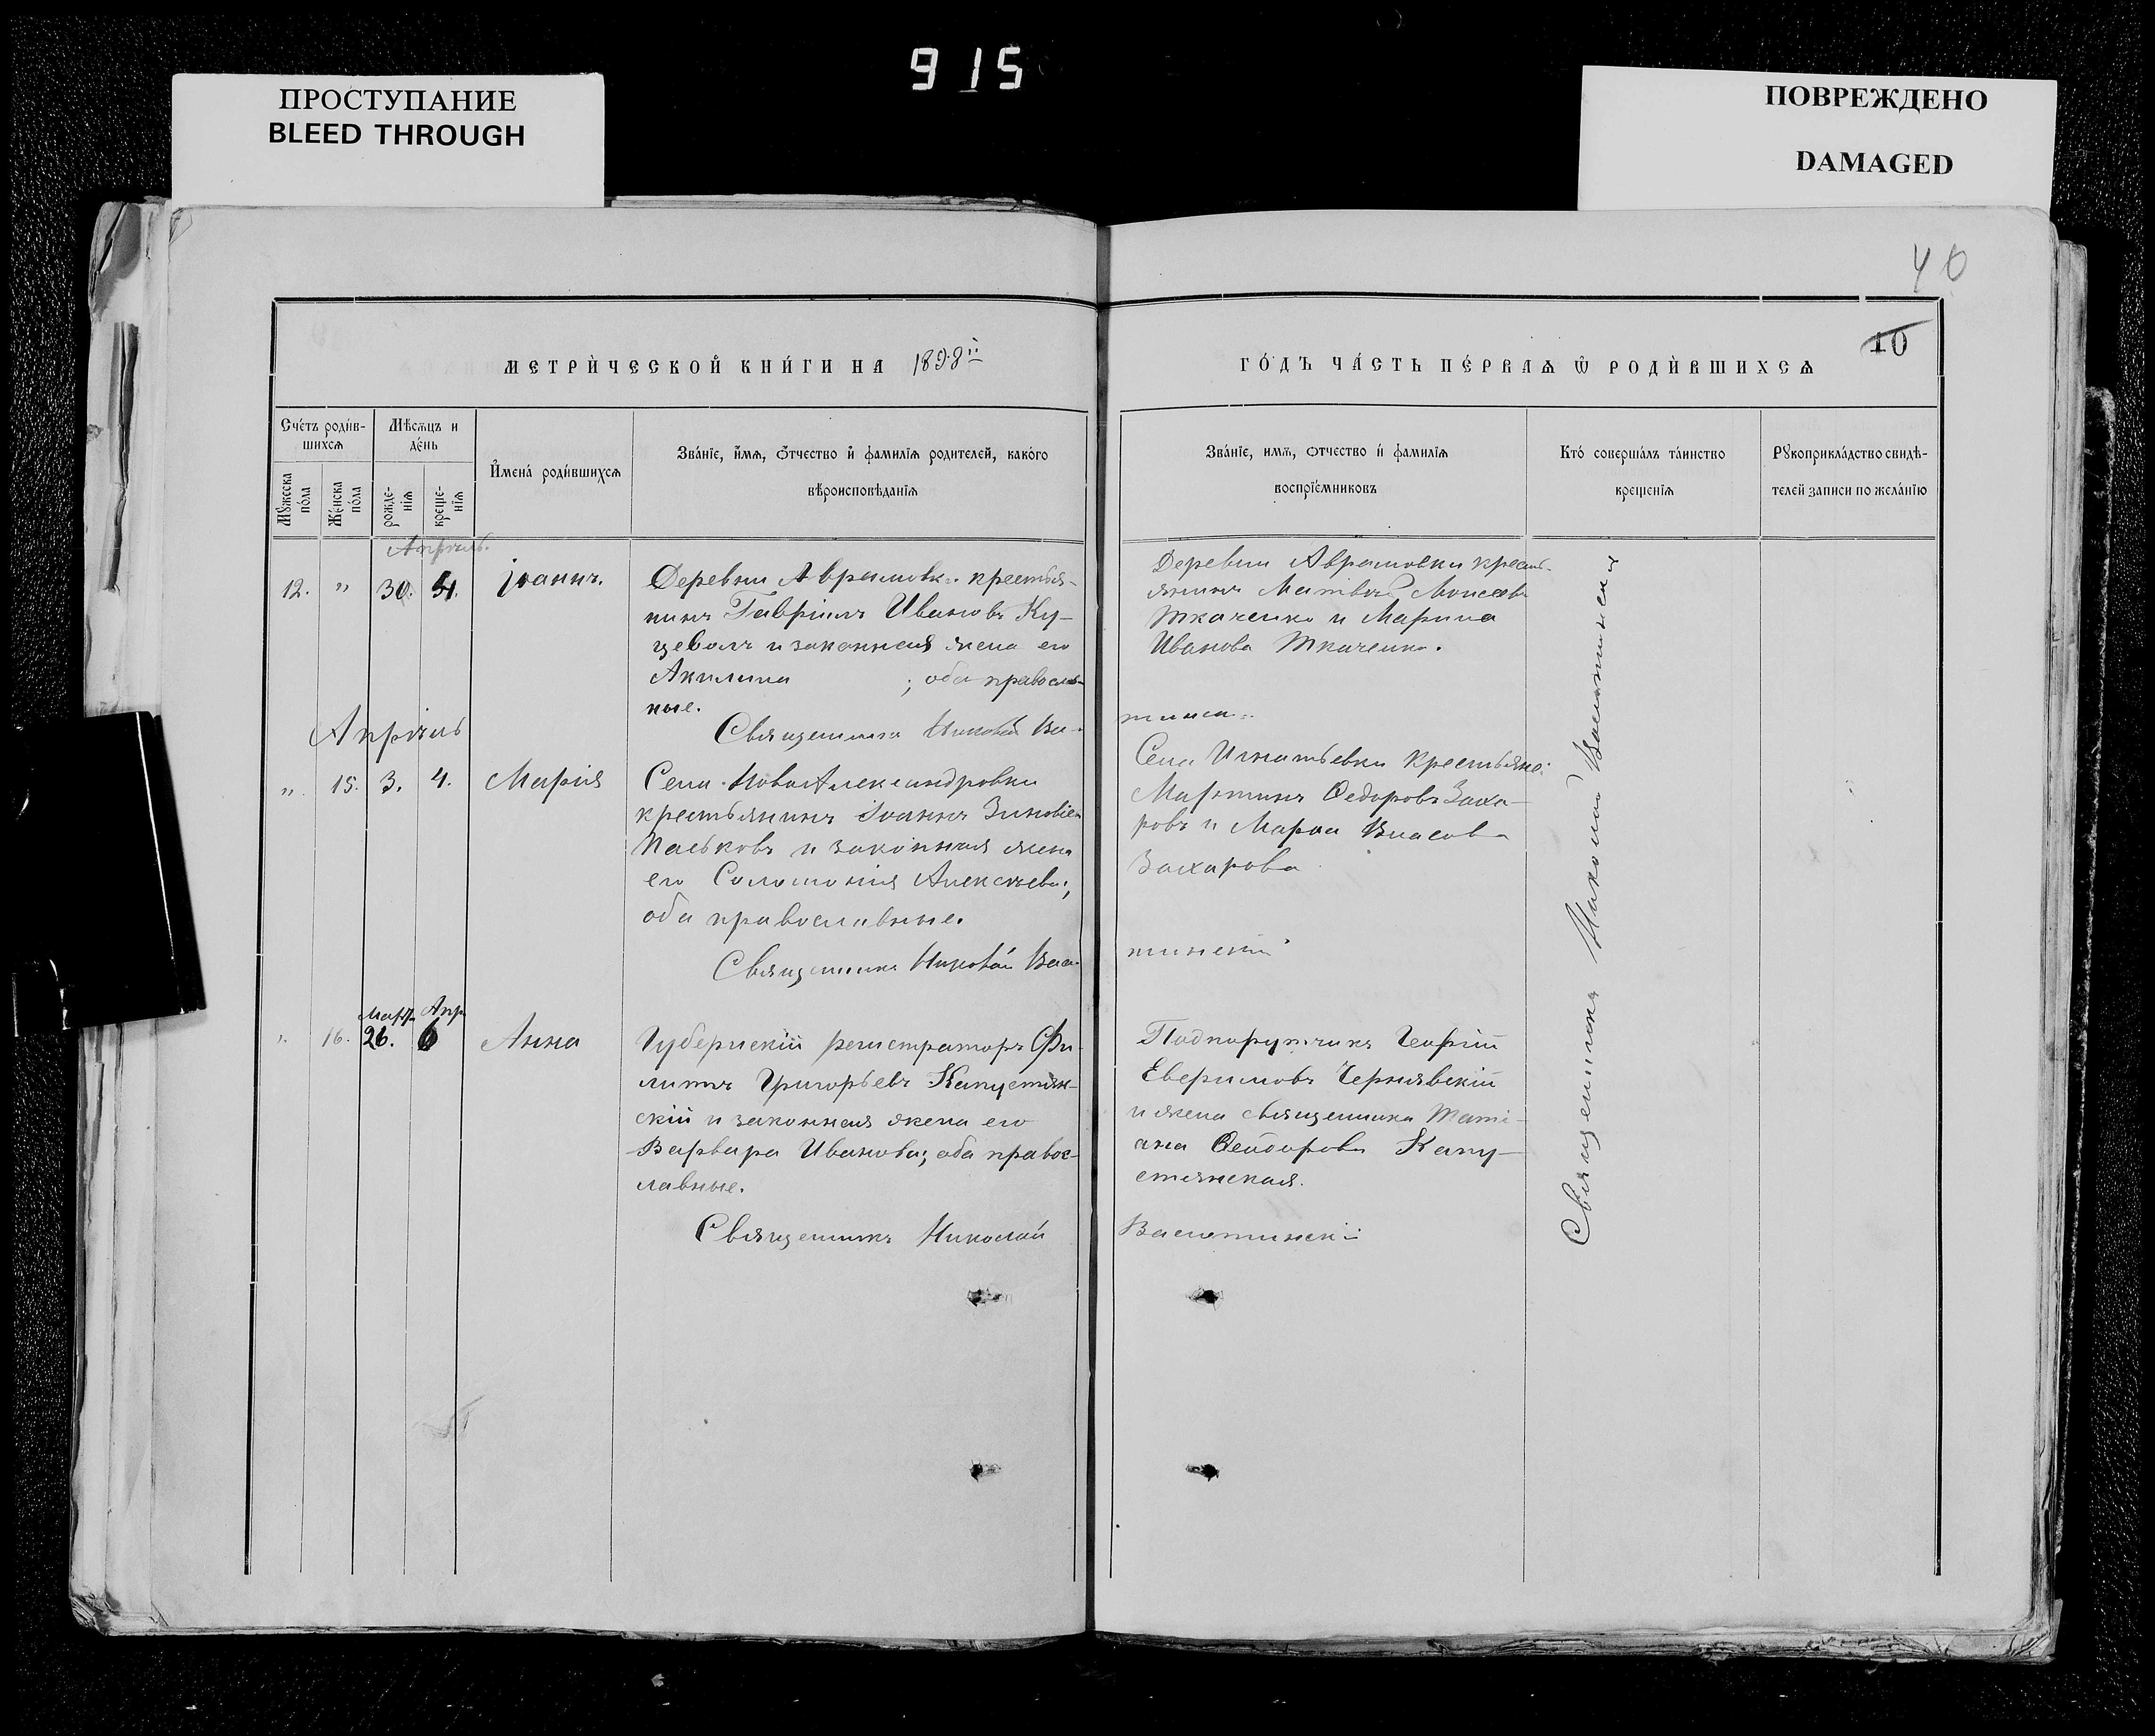 915
ПРОСТУПАНИЕ
BLEED THROUGH
ПОВРЕЖДЕНО
DAMAGED
40
10
МЕТРИ́ЧЕСКОЙ КНИ́ГИ НА 1898й
ГО́ДЪ ЧА́СТЬ ПЕ́РВАѦ Ѡ҆ РОДИ́ВШИХСѦ
Сче́тъ роди́в-
шихсѧ
Мѣ́сѧцъ и
де́нь
Мꙋ́жеска
по́ла
Же́нска
по́ла
рожде-
нїѧ
креще-
нїѧ
И҆мена́ роди́вшихсѧ
Зва́нїе, и҆́мѧ, ѻ҆́тчество и҆ фами́лїѧ роди́телей, како́го
вѣроисповѣ́данїѧ
Зва́нїе, и҆́мѧ, ѻ҆́тчество и҆ фами́лїѧ
воспрїе́мниковъ
Кто́ соверша́лъ та́инство
креще́нїѧ
Рꙋкоприкла́дство свидѣ́-
телей записи по жела́нїю
Апрѣль.
12. " 30. 4. Іоаннъ.
Деревни Аврамовки крестья-
нинъ Гавріилъ Ивановъ Ку-
цеволъ и законная жена его
Акилина ; оба православ-
ные.
Священникъ Николай Ва-
Деревни Аврамовки кресть-
янинъ Матвѣй Моисеевъ
Ткаченко и Марина
Иванова Ткаченко.
Апрѣль
" 15. 3. 4. Марія
Села Новоалександровки
крестьянинъ Іоаннъ Зиновіевъ
Паськовъ и законная жена
его Соломонія Алексѣева;
оба православные.
Священникъ Николай
Села Игнатьевки крестьяне:
Мартинъ Ѳедоровъ Заха-
ровъ и Марѳа Власова
Захарова
Март. Апр.
" 16. 26. 6 Анна
Губернскій регистраторъ Фи-
липпъ Григорьевъ Капустян-
скій и законная жена его
Варвара Иванова; оба правос-
лавные.
Священникъ Николай
Подпоручикъ Георгій
Чернявскій
и жена священника Таті-
ана Ѳеодорова Капу-
стянская.
Священникъ Николай